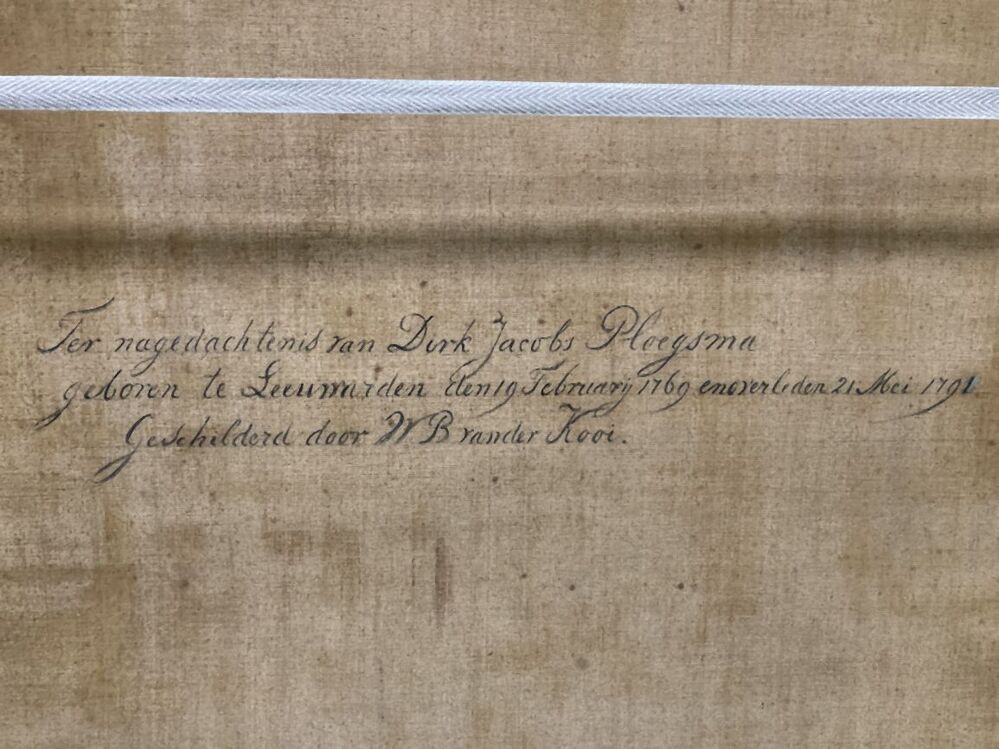 Ter nagedachtenis van Dirk Jacobs Ploegsma
geboren te Leeuwarden den 19 February 1769 en overleden 21 Mei 1791
Geschilderd door W B van der Kooi.